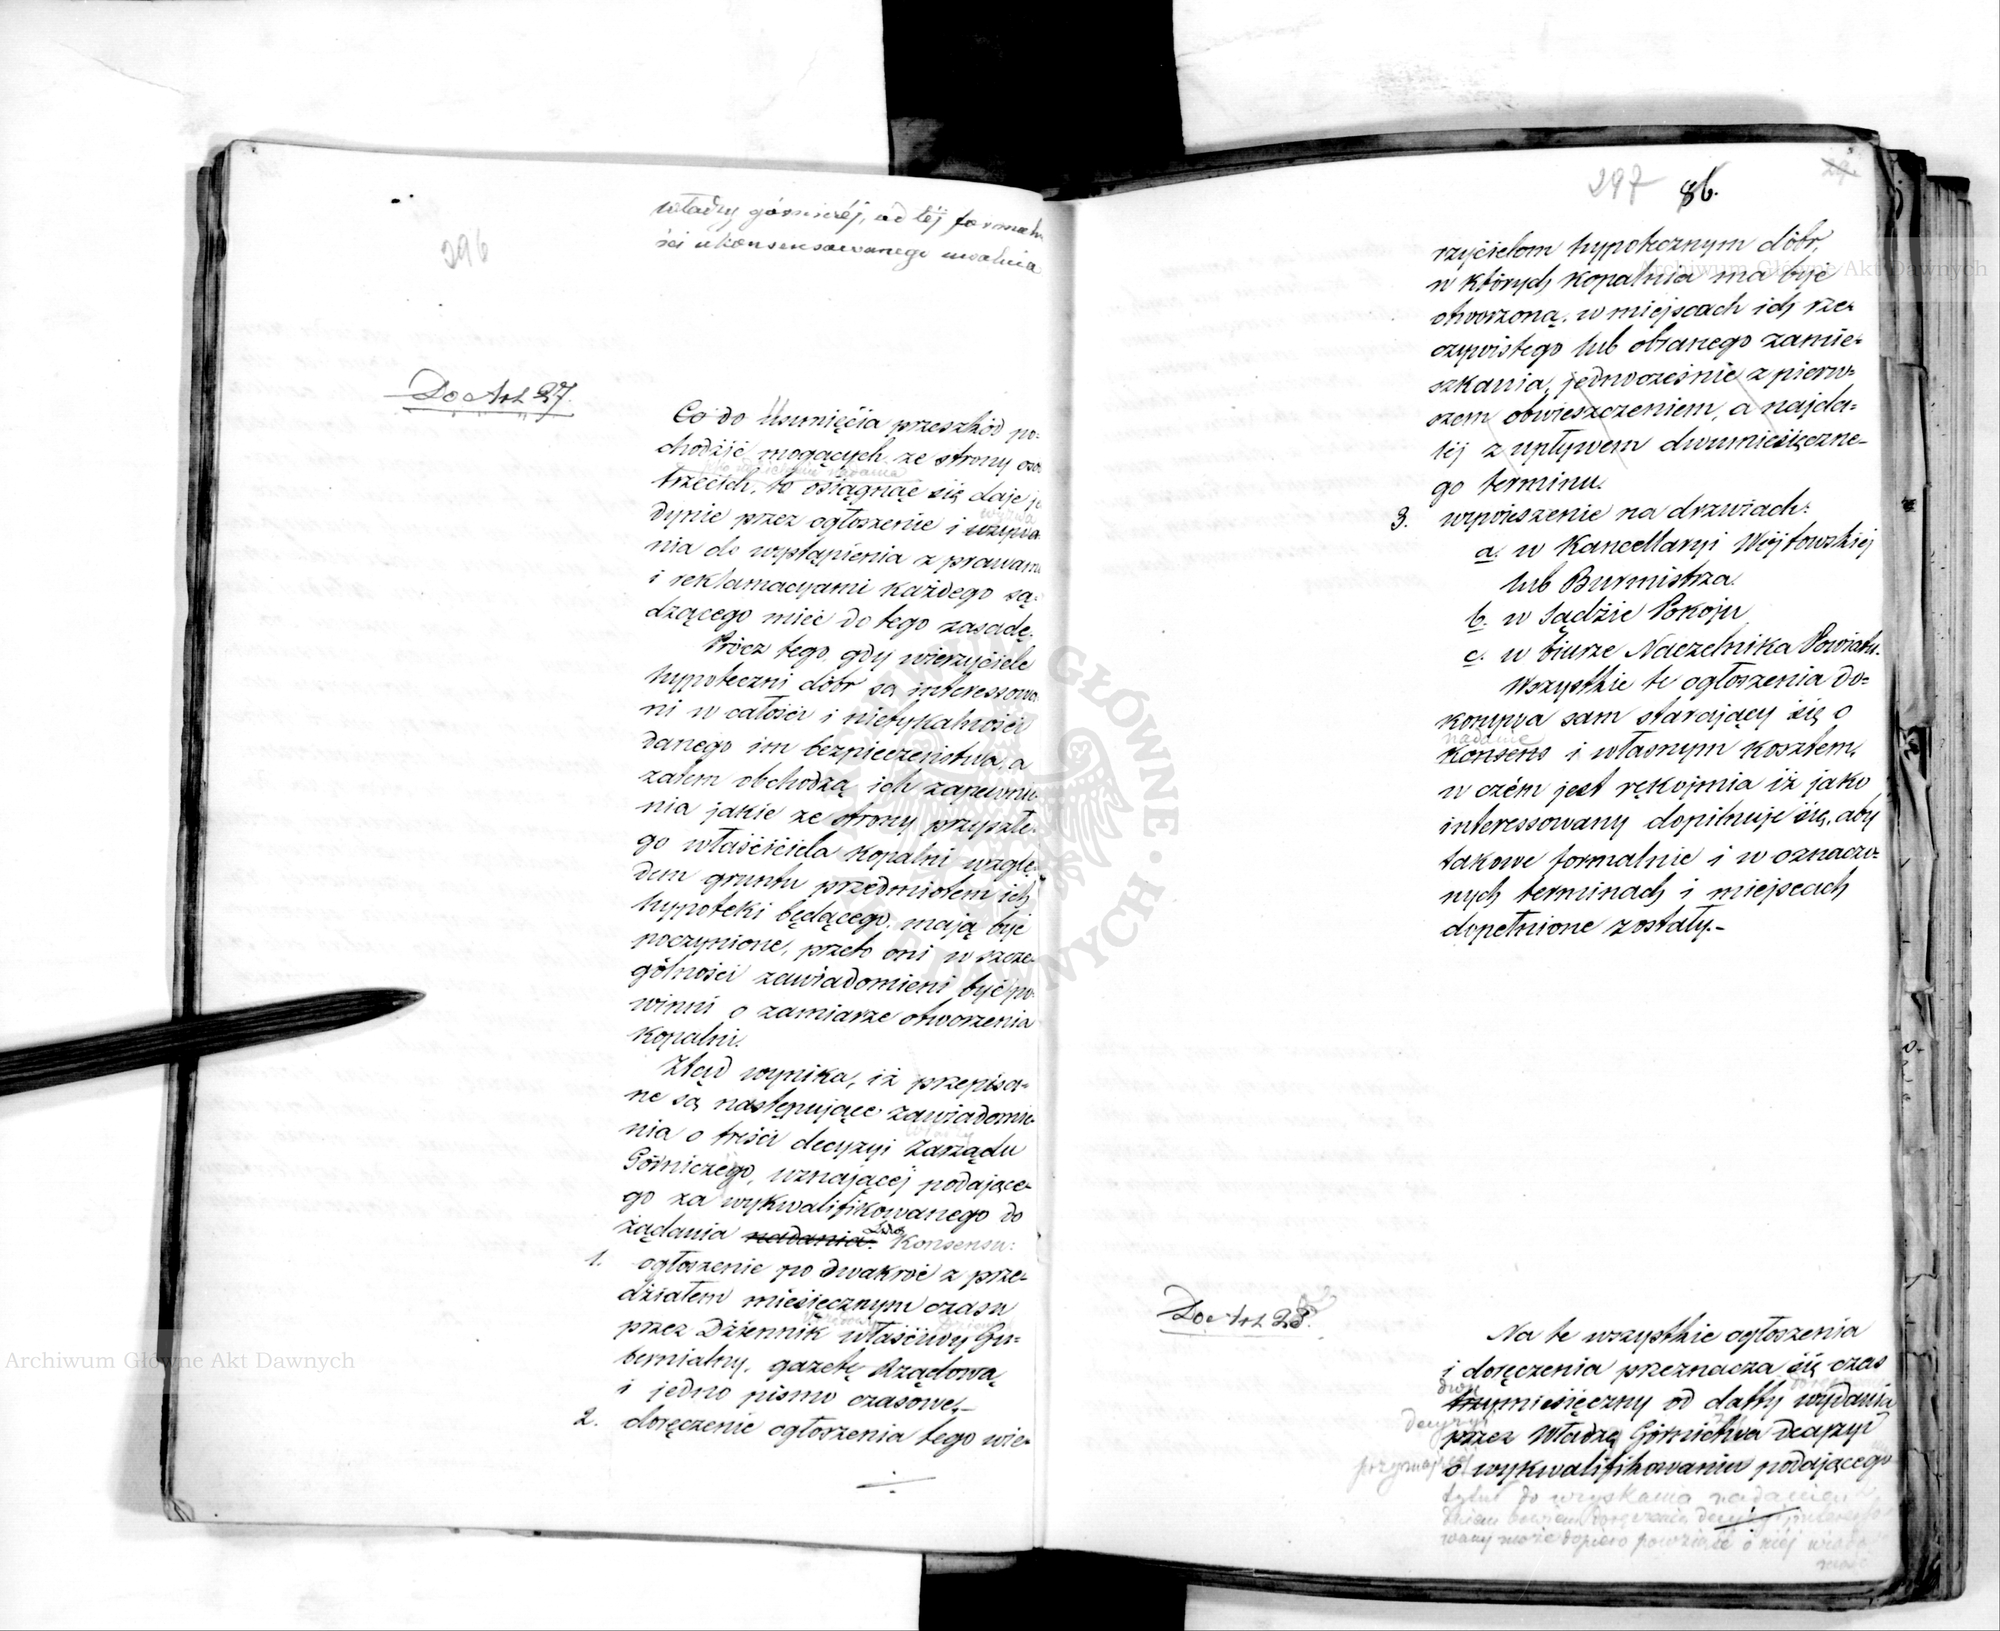 296
władzy górniczéj, od téj formaln
ści ukonsensowanego uwalnia
Do Art 27.
Co do Usunięcia przeszkód po=
chodzić mogących ze strony osó
trzecich, to osiągnąć się daje je
dynie przez ogłoszenie i wzywa
nia do wystąpienia z prawami
i reklamacyami każdego są=
dzącego mieć do tego zasadę.
Prócz tego, gdy wierzyciele
hypoteczni dóbr są interessowa
ni w całości i nietykalności
danego im bezpieczeństwa, a
zatem obchodzą ich zapewnie
nia jakie ze strony przyszłe=
go właściciela kopalni wzglę=
dem gruntu przedmiotem ich
hypoteki będącego, mają być
poczynione, przeto oni w szcze=
gólności zawiadomieni być po=
winni o zamiarze otworzenia
kopalni.
Ztąd wynika, iż przepisa=
ne są następujące zawiadomie=
nia o treści decyzyi Zarządu
Górniczego, uznającéj podające=
go za wykwalifikowanego do
żądania nadania Konsensu:
1. ogłoszenie po dwakroć z prze=
działem miesięcznym czasu
przez Dziennik właściwy Gu=
bernialny, gazetę Rządową
i jedno pismo czasowe,
2. doręczenie ogłoszenia tego wie=
297 86.
29.
rzycielom hypotecznym dóbr,
w których kopalnia ma być
otworzoną, w miejscach ich rze=
czywistego lub obranego zamie=
szkania, jednocześnie z pierw=
szem obwieszczeniem, a najda=
léj z upływem dwumiesięczne=
go terminu.
3. wywieszenie na drzwiach:
a. w Kancellaryi Wójtowskiej
lub Burmistrza.
b. w Sądzie Pokoju
c. w biurze Naczelnika Powiatu.
Wszystkie te ogłoszenia do=
konywa sam starający się o
nadanie
Konsens i własnym kosztem,
w czém jest rękojmia iż jako
interessowany dopilnuje się, aby
takowe formalnie i w oznaczo=
nych terminach i miejscach
dopełnione zostały.
Do Art 28.
Na te wszystkie ogłoszenia
i doręczenia przeznacza się czas
dwu
trzymiesięczny od datty wydania
decyzyi
przez Władzę Górnictwa decyzyi
o wykwalifikowaniu podającego
tytuł do uzyskania nadania
wany może dopiero powziąść o niéj wiado
mość
Archiwum Główne Akt Dawnych
Archiwum Główne Akt Dawnych
ARCHIWUM GŁÓWNE AKT DAWNYCH